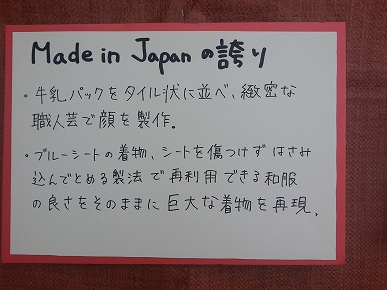 Made in Japan の誇り
・牛乳パックをタイル状に並べ、緻密な
職人芸で顔を製作。
・ブルーシートの着物、シートを傷つけず はさみ
込んでとめる製法 で 再利用 できる和服
の良さをそのままに 巨大な着物を再現。